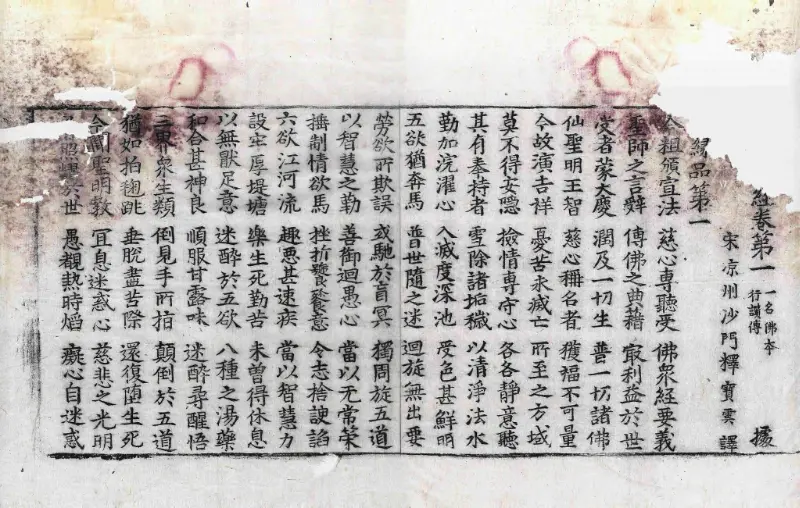 經卷第一 一名佛本行讃傳 據
宋凉州沙門釋寶雲譯
緣品第一
今粗頒宣法 慈心專聽受 佛衆經要義
聖師之言辝 傳佛之典籍 㝡利益於世
受者蒙大慶 潤及一切生 普一切諸佛
仙聖明王智 慈心稱名者 獲福不可量
今故演吉祥 憂苦永滅亡 所至之方域
莫不得安隱 撿情專守心 各各靜意聽
其有奉持者 雪除諸垢穢 以清淨法水
勤加浣濯心 入滅度深池 受色甚鮮明
五欲猶奔馬 普世隨之迷 迴旋無出要
勞欲所欺誤 或馳於盲冥 獨周旋五道
以智慧之勒 善御迴愚心 當以无常策
制情欲馬 挫折饕餮意 令志捨諛諂
六欲江河流 趣惡甚速疾 當以智慧力
設牢厚堤塘 樂生死勤苦 未曾得休息
以無猒足意 迷醉於五欲 八種之湯藥
和合甚神良 順服甘露味 迷醉尋醒悟
三界衆生類 倒見手所拍 顛倒於五道
猶如拍毱跳 垂脫盡苦際 還復墮生死
今聞聖明教 冝息迷惑心 慈悲之光明
照曜於世 愚觀熱時焰 癡心自迷惑